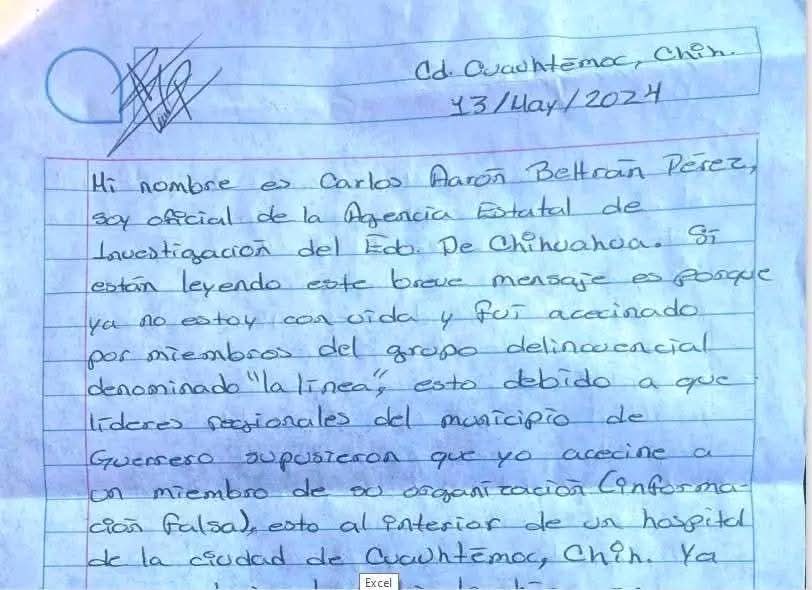 Cd. Cuauhtēmoc, Chih.
13/May/2024
Mi nombre es Carlos Aarōn Beltrān Pérez,
soy oficial de la Agencia Estatal de
Investigaciōn del Edo. De Chihuahua. Sī
estān leyendo este breve mensaje es porque
ya no estoy con vida y fui acecinado
por miembros del grupo delincuencial
denominado "la línea", esto debido a que
líderes regionales del municipio de
Guerrero supusieron que yo acecine a
un miembro de su organizaciōn (informa-
ciōn falsa), esto al interior de un hospital
de la ciudad de Cuauhtēmoc, Chih. Ya
Excel